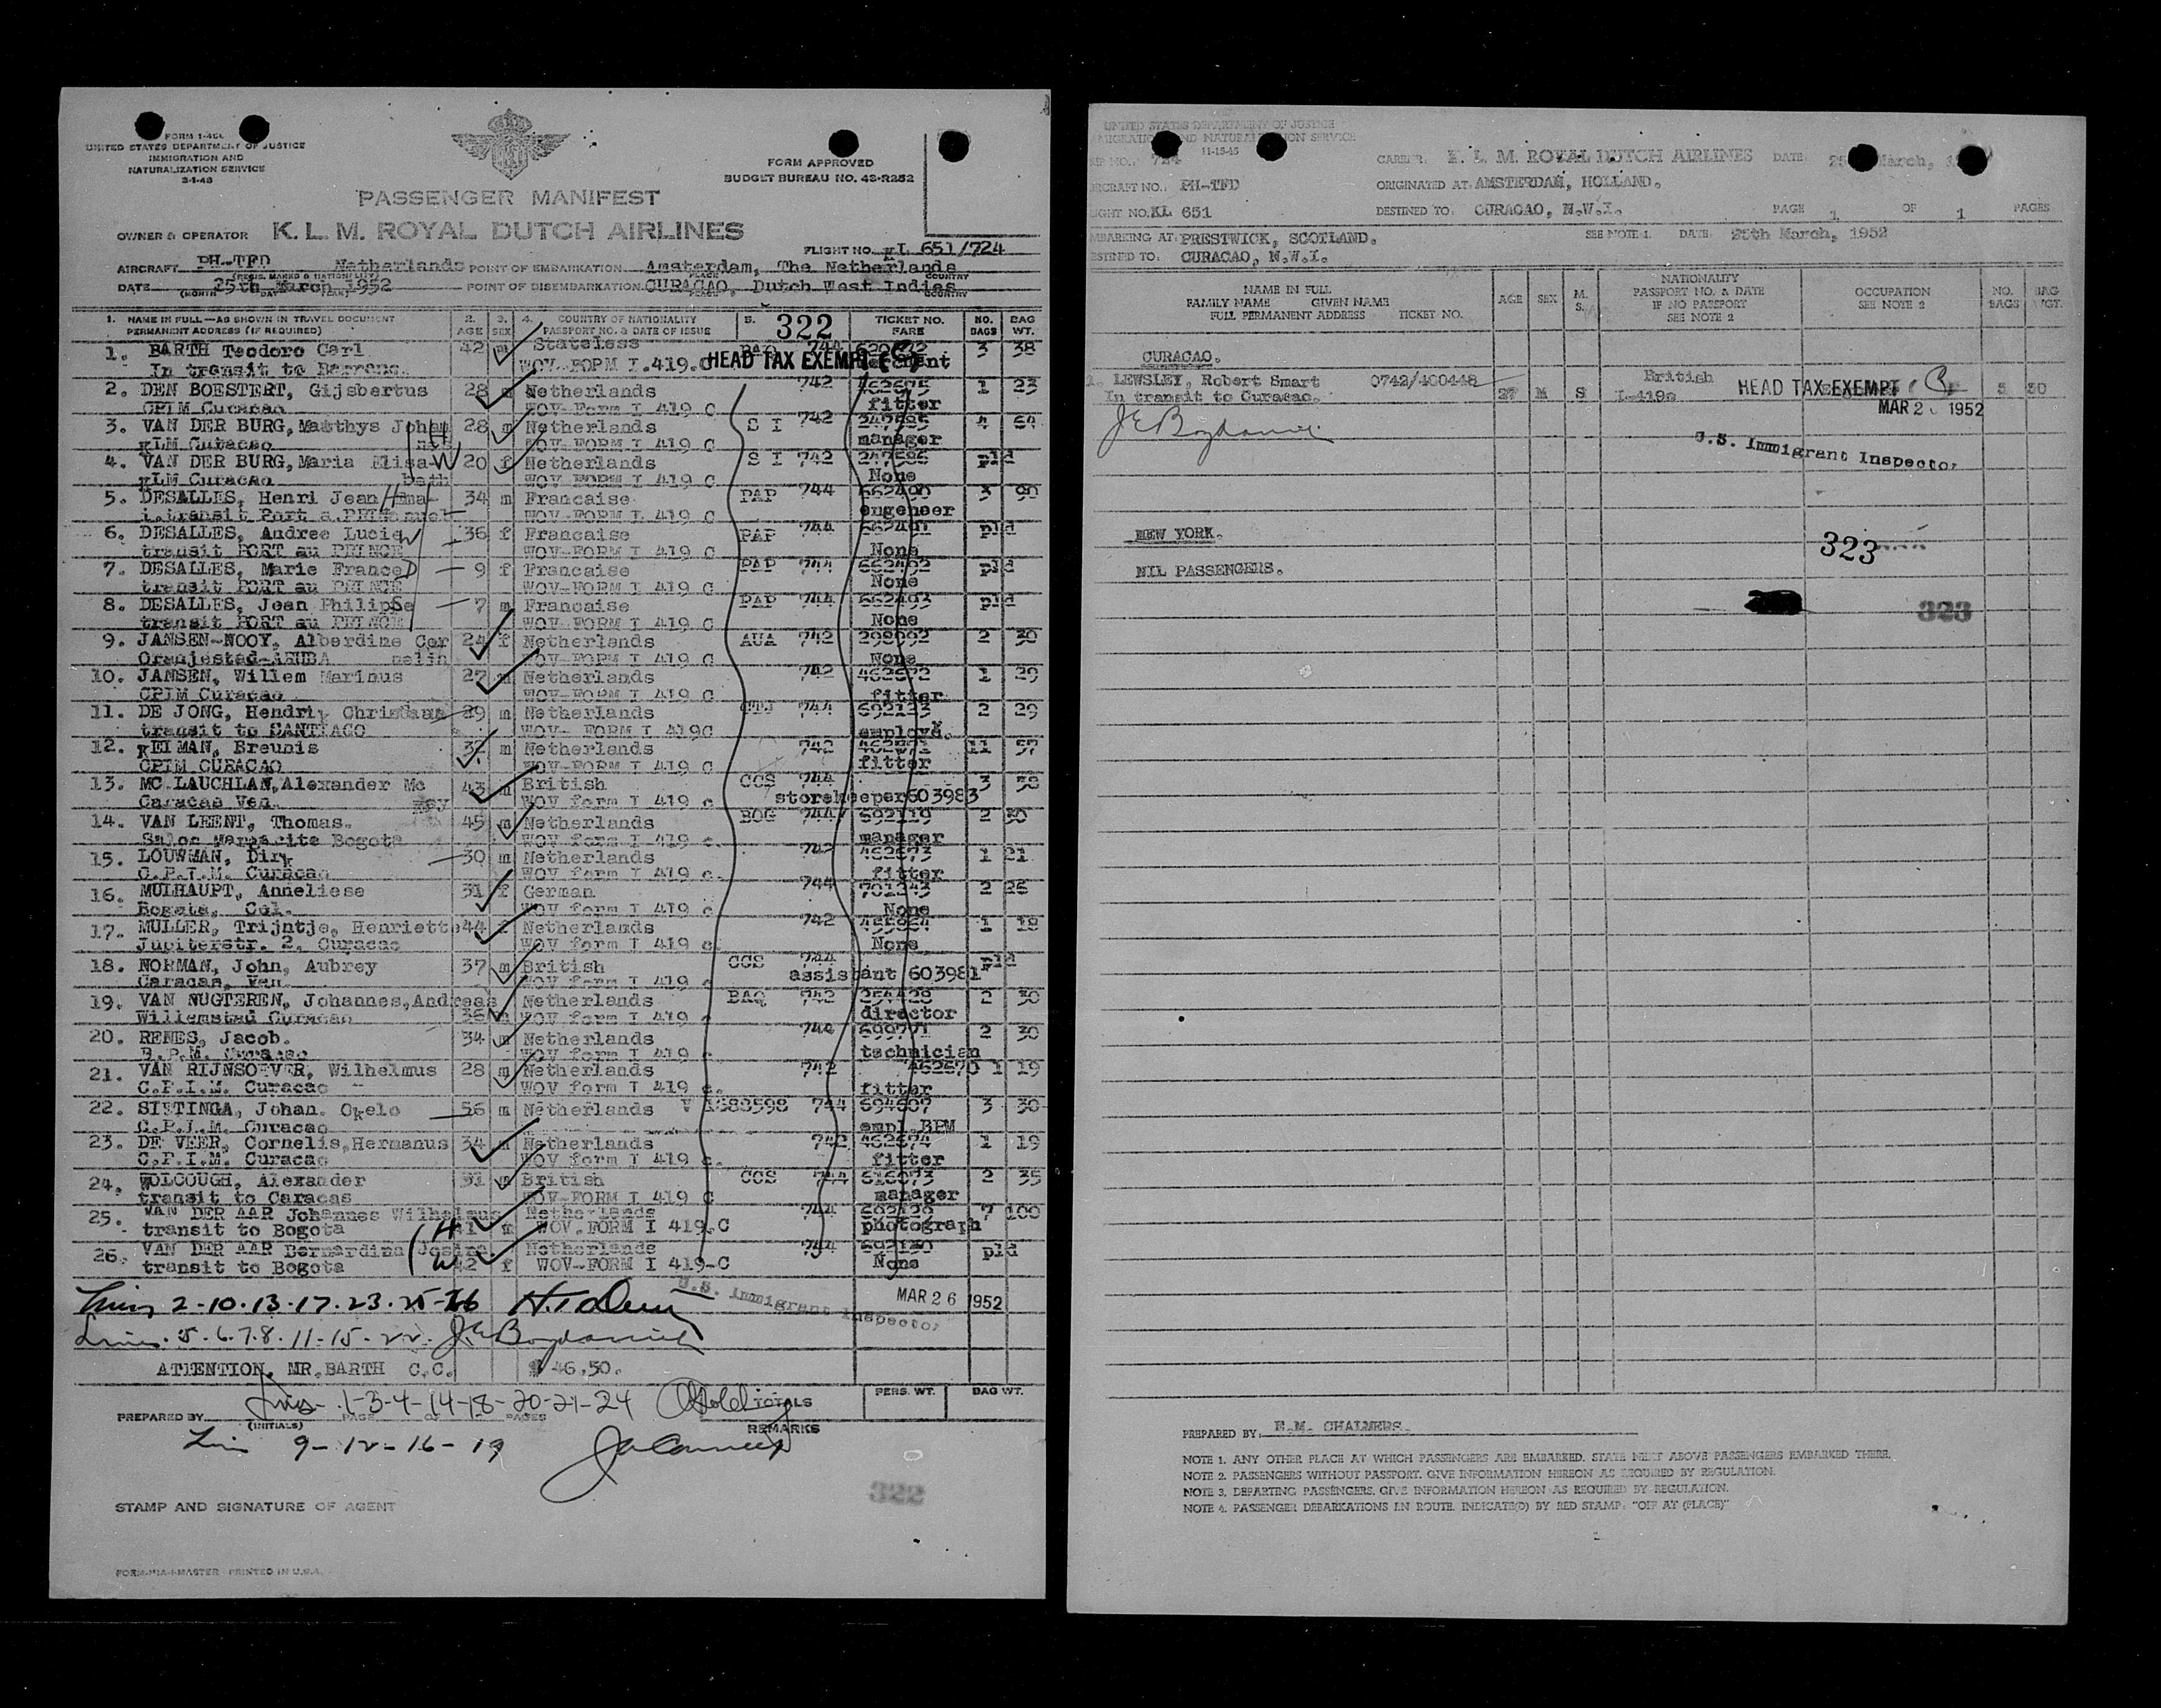 FORM I-466
UNITED STATES DEPARTMENT OF JUSTICE
IMMIGRATION AND
NATURALIZATION SERVICE
3-1-48
FORM APPROVED
BUDGET BUREAU NO. 43-R252
PASSENGER MANIFEST
OWNER & OPERATOR K.L.M. ROYAL DUTCH AIRLINES
FLIGHT NO. KL 651/724
AIRCRAFT PH-TFD Netherlands POINT OF EMBARKATION Amsterdam, The Netherlands
(REGIS. MARKS & NATIONALITY) PLACE COUNTRY
DATE 25th March 1952 POINT OF DISEMBARKATION CURACAO, Dutch West Indies
(MONTH DAY YEAR) PLACE COUNTRY
1. NAME IN FULL—AS SHOWN IN TRAVEL DOCUMENT 2. 3. 4. COUNTRY OF NATIONALITY 5. 322 TICKET NO. NO. BAG
PERMANENT ADDRESS (IF REQUIRED) AGE SEX PASSPORT NO. & DATE OF ISSUE FARE BAGS WT.
1. BARTH Teodoro Carl 42 m Stateless 744 3 38
In transit to WOV-FORM I.419.C HEAD TAX EXEMPT
2. DEN BOESTERT, Gijsbertus 28 m Netherlands 742 462675 1 23
CPIM Curacao WOV-Form I 419 C fitter
3. VAN DER BURG, Matthys Johan 28 m Netherlands S I 742 247585 4 64
KLM Curacao nes WOV-FORM I 419 C manager
4. VAN DER BURG, Maria Elisa- W 20 f Netherlands S I 742 247586 pld
KLM Curacao beth WOV FORM I 419 C None
5. DESALLES, Henri Jean Ema- 34 m Francaise PAP 744 662490 3 90
i.transit Port a.PRINCE nuel WOV-FORM I 419 C engeneer
6. DESALLES, Andree Lucie W 36 f Francaise PAP 744 662491 pld
transit PORT au PRINCE WOV-FORM I 419 C None
7. DESALLES, Marie France D 9 f Francaise PAP 744 662492 pld
transit PORT au PRINCE WOV-FORM I 419 C None
8. DESALLES, Jean Philippe 7 m Francaise PAP 744 662493 pld
transit PORT au PRINCE WOV FORM I 419 C None
9. JANSEN-NOOY, Alberdine Cor 24 f Netherlands AUA 742 298092 2 30
Oranjestad-ARUBA nelia WOV-FORM I 419 C None
10. JANSEN, Willem Marinus 27 m Netherlands 742 462672 1 29
CPIM Curacao WOV-FORM I 419 C fitter
11. DE JONG, Hendrik Christiaan 29 m Netherlands 744 692123 2 29
transit to SANTIAGO WOV- FORM I 419C employé.
12. KEIMAN, Breunis m Netherlands 742 462671 11 57
CPIM CURACAO WOV-FORM I 419 C fitter
13. MC.LAUCHLAN, Alexander Mc 43 m British CCS 744 3 38
Caracas Ven. Key WOV form I 419 c. storekeeper 603983
14. VAN LEENT, Thomas. 45 m Netherlands BOG 744 692119 2 30
Margarita Bogota WOV form I 419 c. manager
15. LOUWMAN, Dirk 30 m Netherlands 742 462673 1 21
C.P.I.M. Curacao WOV form I 419 c. fitter
16. MULHAUPT, Anneliese 31 f German 744 701243 2 26
Bogota, Col. WOV form I 419 c. None
17. MULLER, Trijntje, Henriette 44 f Netherlands 742 1 18
Jupiterstr. 2, Curacao WOV form I 419 c. None
18. NORMAN, John, Aubrey 37 m British CCS 744 pld
Caracas, Ven. WOV form I 419 c. assistant 603981
19. VAN NUGTEREN, Johannes, Andreas Netherlands BAQ 742 254428 2 30
Willemstad Curacao 36 m WOV form I 419 c director
20. RENES, Jacob. 34 m Netherlands 744 699771 2 30
B.P.M. Curacao WOV form I 419 c. technician
21. VAN RIJNSOEVER, Wilhelmus 28 m Netherlands 742 462670 1 19
C.P.I.M. Curacao WOV form I 419 c. fitter
22. SIETINGA, Johan. Okele 56 m Netherlands V 1688598 744 694607 3 30
C.P.I.M. Curacao empl.BPM
23. DE VEER, Cornelis, Hermanus 34 m Netherlands 742 462674 1 19
C.P.I.M. Curacao WOV form I 419 c. fitter
24. WOLCOUGH, Alexander 31 m British CCS 744 616073 2 35
transit to Caracas WOV-FORM I 419 C manager
25. VAN DER AAR Johannes Wilhelmus Netherlands 744 692129 7 100
transit to Bogota H 41 m WOV.FORM I 419.C photograph
26. VAN DER AAR Bernardina Josina Netherlands 744 692130 pld
transit to Bogota W 42 f WOV-FORM I 419-C None
Lines 2-10-13-17-23-25-26
U.S. Immigrant Inspector
MAR 26 1952
Lines. 5-6-7-8-11-15-22.
ATTENTION. MR.BARTH C.C. $ 46.50.
PERS. WT. BAG WT.
Lines- 1-3-4-14-18-20-21-24 TOTALS
PREPARED BY (INITIALS) PAGE OF PAGES
REMARKS
Lin 9-12-16-19
322
STAMP AND SIGNATURE OF AGENT
FORM-M1A-I-MASTER PRINTED IN U.S.A.
UNITED STATES DEPARTMENT OF JUSTICE
MIGRATION AND NATURALIZATION SERVICE
11-15-45
724 CARRIER: K. L. M. ROYAL DUTCH AIRLINES DATE 25 March,
IRCRAFT NO. PH-TFD ORIGINATED AT: AMSTERDAM, HOLLAND.
IGHT NO. KL 651 DESTINED TO: CURACAO, N.W.I. PAGE 1 OF 1 PAGES
MBARKING AT: PRESTWICK, SCOTLAND. SEE NOTE 1. DATE: 25th March, 1952
ESTINED TO: CURACAO, N.W.I.
NAME IN FULL AGE SEX M. S. NATIONALITY OCCUPATION NO. BAG
FAMILY NAME GIVEN NAME PASSPORT NO. & DATE SEE NOTE 2 BAGS WGT.
FULL PERMANENT ADDRESS TICKET NO. IF NO PASSPORT
SEE NOTE 2
CURACAO.
1. LEWSLEY, Robert Smart 0742/400448 27 M S British HEAD TAX EXEMPT 3 30
In transit to Curacao. I-419c
MAR 26 1952
U.S. Immigrant Inspector
NEW YORK.
323
NIL PASSENGERS.
323
PREPARED BY: E.M. CHALMERS.
NOTE 1. ANY OTHER PLACE AT WHICH PASSENGERS ARE EMBARKED. STATE NEXT ABOVE PASSENGERS EMBARKED THERE.
NOTE 2. PASSENGERS WITHOUT PASSPORT. GIVE INFORMATION HEREON AS REQUIRED BY REGULATION.
NOTE 3. DEPARTING PASSENGERS. GIVE INFORMATION HEREON AS REQUIRED BY REGULATION.
NOTE 4. PASSENGER DEBARKATIONS EN ROUTE. INDICATE(D) BY RED STAMP: "OFF AT (PLACE)"